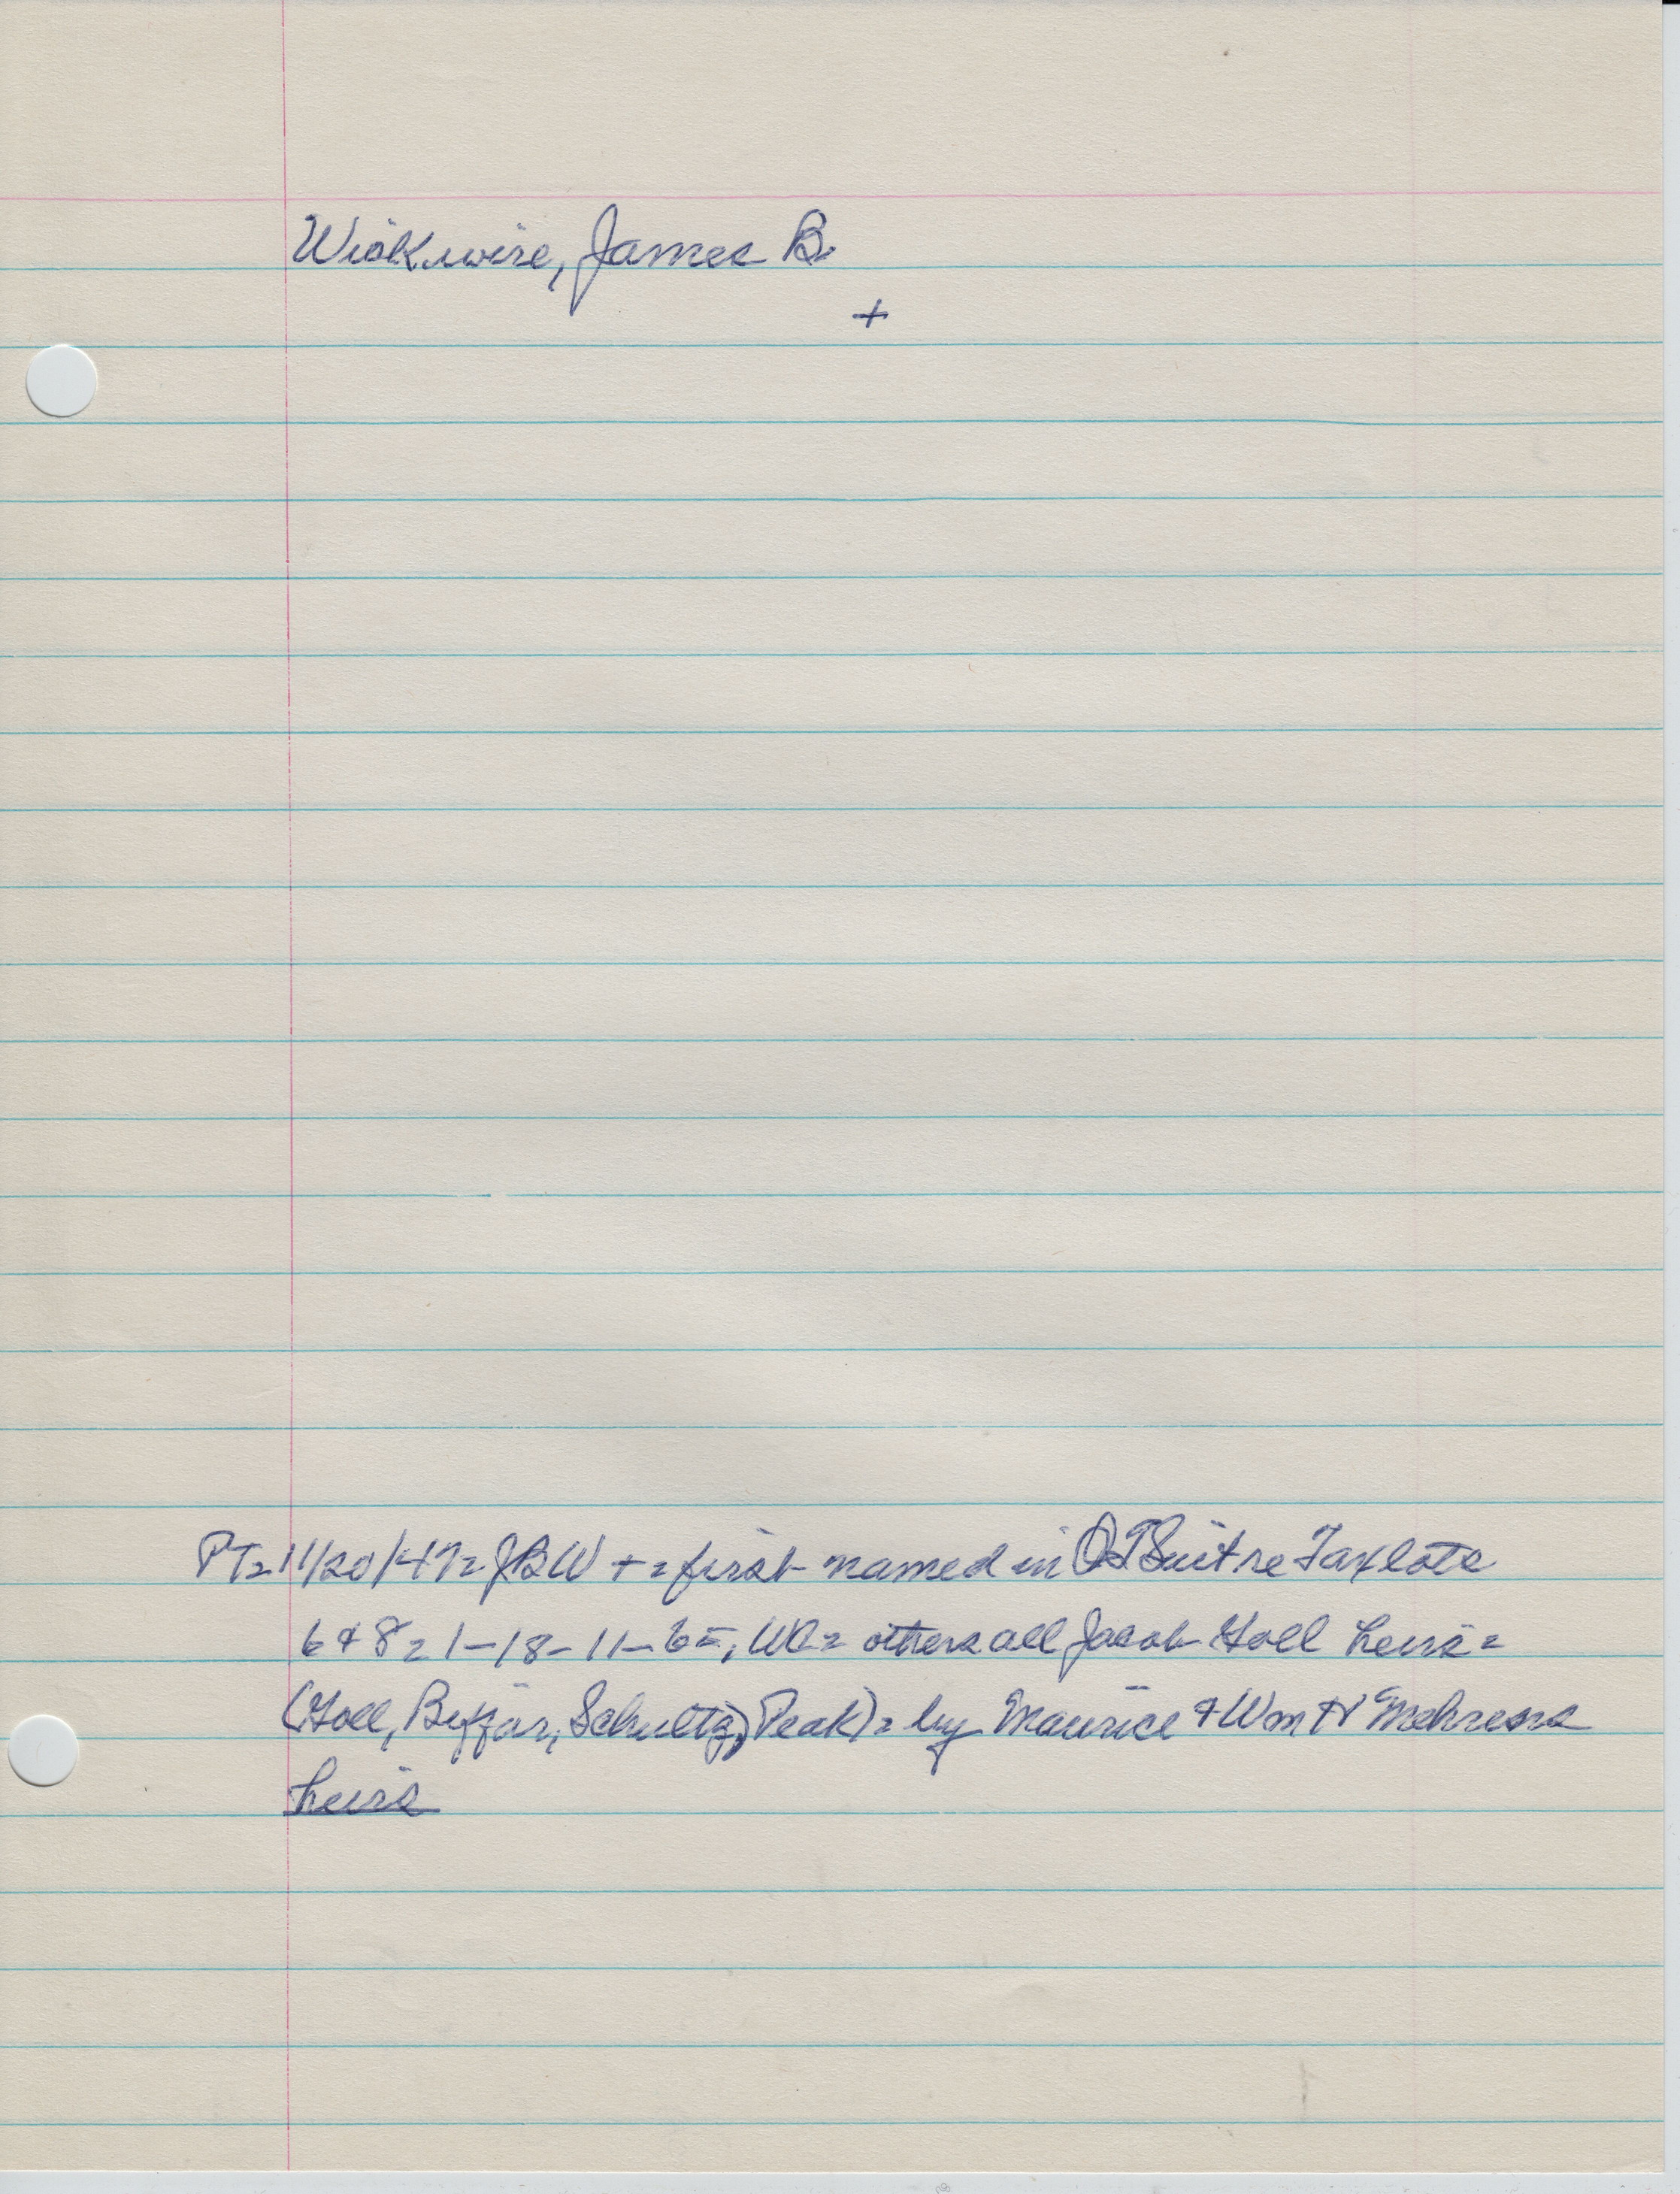 Wickwire, James B.
+
PT=11/20/47= JBW += first named in QT Suit re Taxlots
6 & 8 = 1-18-11-6=, WD= others all Jacob Goll heirs=
(Goll, Schultz, Peak)= by Maurice & Wm H Mehrens
heirs